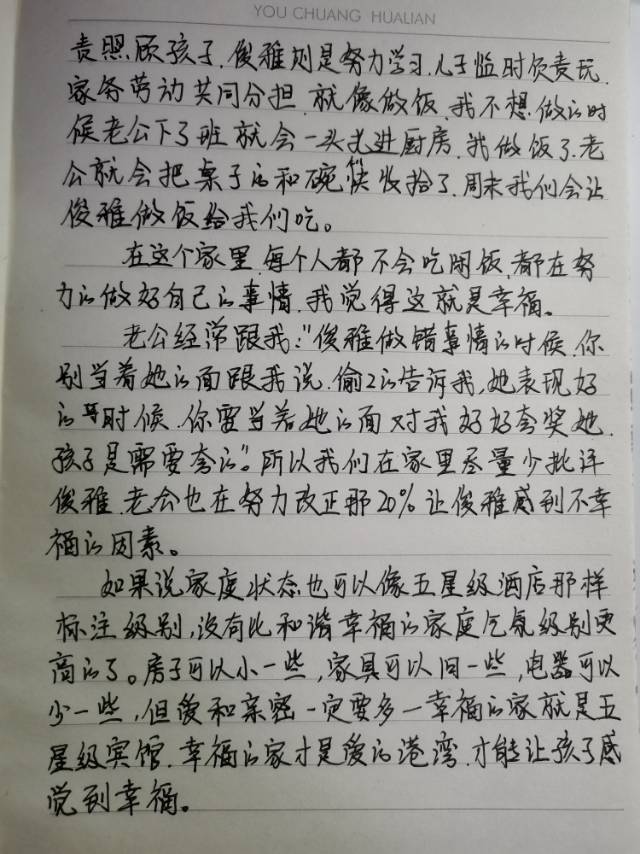 YOU CHUANG HUALIAN
责照顾孩子,俊雅则是努力学习,儿子临时负责玩.
家务劳动共同分担,就像做饭,我不想做的时
候老公下了班就会一头扎进厨房,我做饭了,老
公就会把桌子的和碗筷收拾了,周末我们会让
俊雅做饭给我们吃。
在这个家里,每个人都不会吃闲饭,都在努
力的做好自己的事情,我觉得这就是幸福。
老公经常跟我:"俊雅做错事情的时候,你
别当着她的面跟我说,偷偷的告诉我,她表现好
的时候,你要当着她的面对我好好夸奖她,
孩子是需要夸的"。所以我们在家里尽量少批评
俊雅,老公也在努力改正那20%让俊雅感到不幸
福的因素。
如果说家庭状态也可以像五星级酒店那样
标注级别,没有比和谐幸福的家庭气氛级别更
高的了。房子可以小一些,家具可以旧一些,电器可以
少一些,但爱和亲密一定要多一幸福的家就是五
星级宾馆,幸福的家才是爱的港湾,才能让孩子感
觉到幸福。